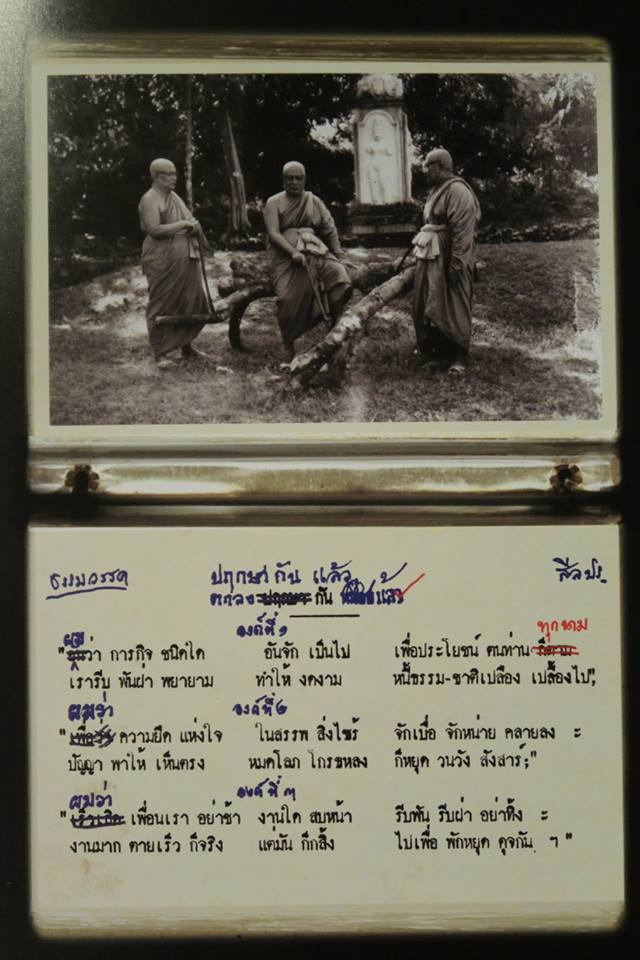 ธรรมวรรค
ปฤกษา กัน แล้ว
ศีลปร.
ตกลง ปฤกษา กัน แล้ว
องค์ที่ ๑
ทุกยาม
ผม
"ว่า การกิจ ชนิดใด อันจัก เป็นไป เพื่อประโยชน์ ตนท่าน ก็ตาม
เรารีบ ฟันฝ่า พยายาม ทำให้ งดงาม หนี้ธรรม-ชาติเปลือง เปลื้องไป",
ผมว่า
องค์ที่ ๒
"เพื่อว่า ความยึด แห่งใจ ในสรรพ สิ่งไซร้ จักเบื่อ จักหน่าย คลายลง ะ
ปัญญา พาให้ เห็นตรง หมดโลภ โกรธหลง ก็หยุด วนวัง สังสาร์;"
ผมว่า
องค์ที่ ๓
"เร็วเถิด เพื่อนเรา อย่าช้า งานใด สบหน้า รีบฟัน รีบฝ่า อย่าทิ้ง ะ
งานมาก ตายเร็ว ก็จริง แต่มัน ก็กลิ้ง ไปเพื่อ พักหยุด ดุจกัน ฯ"